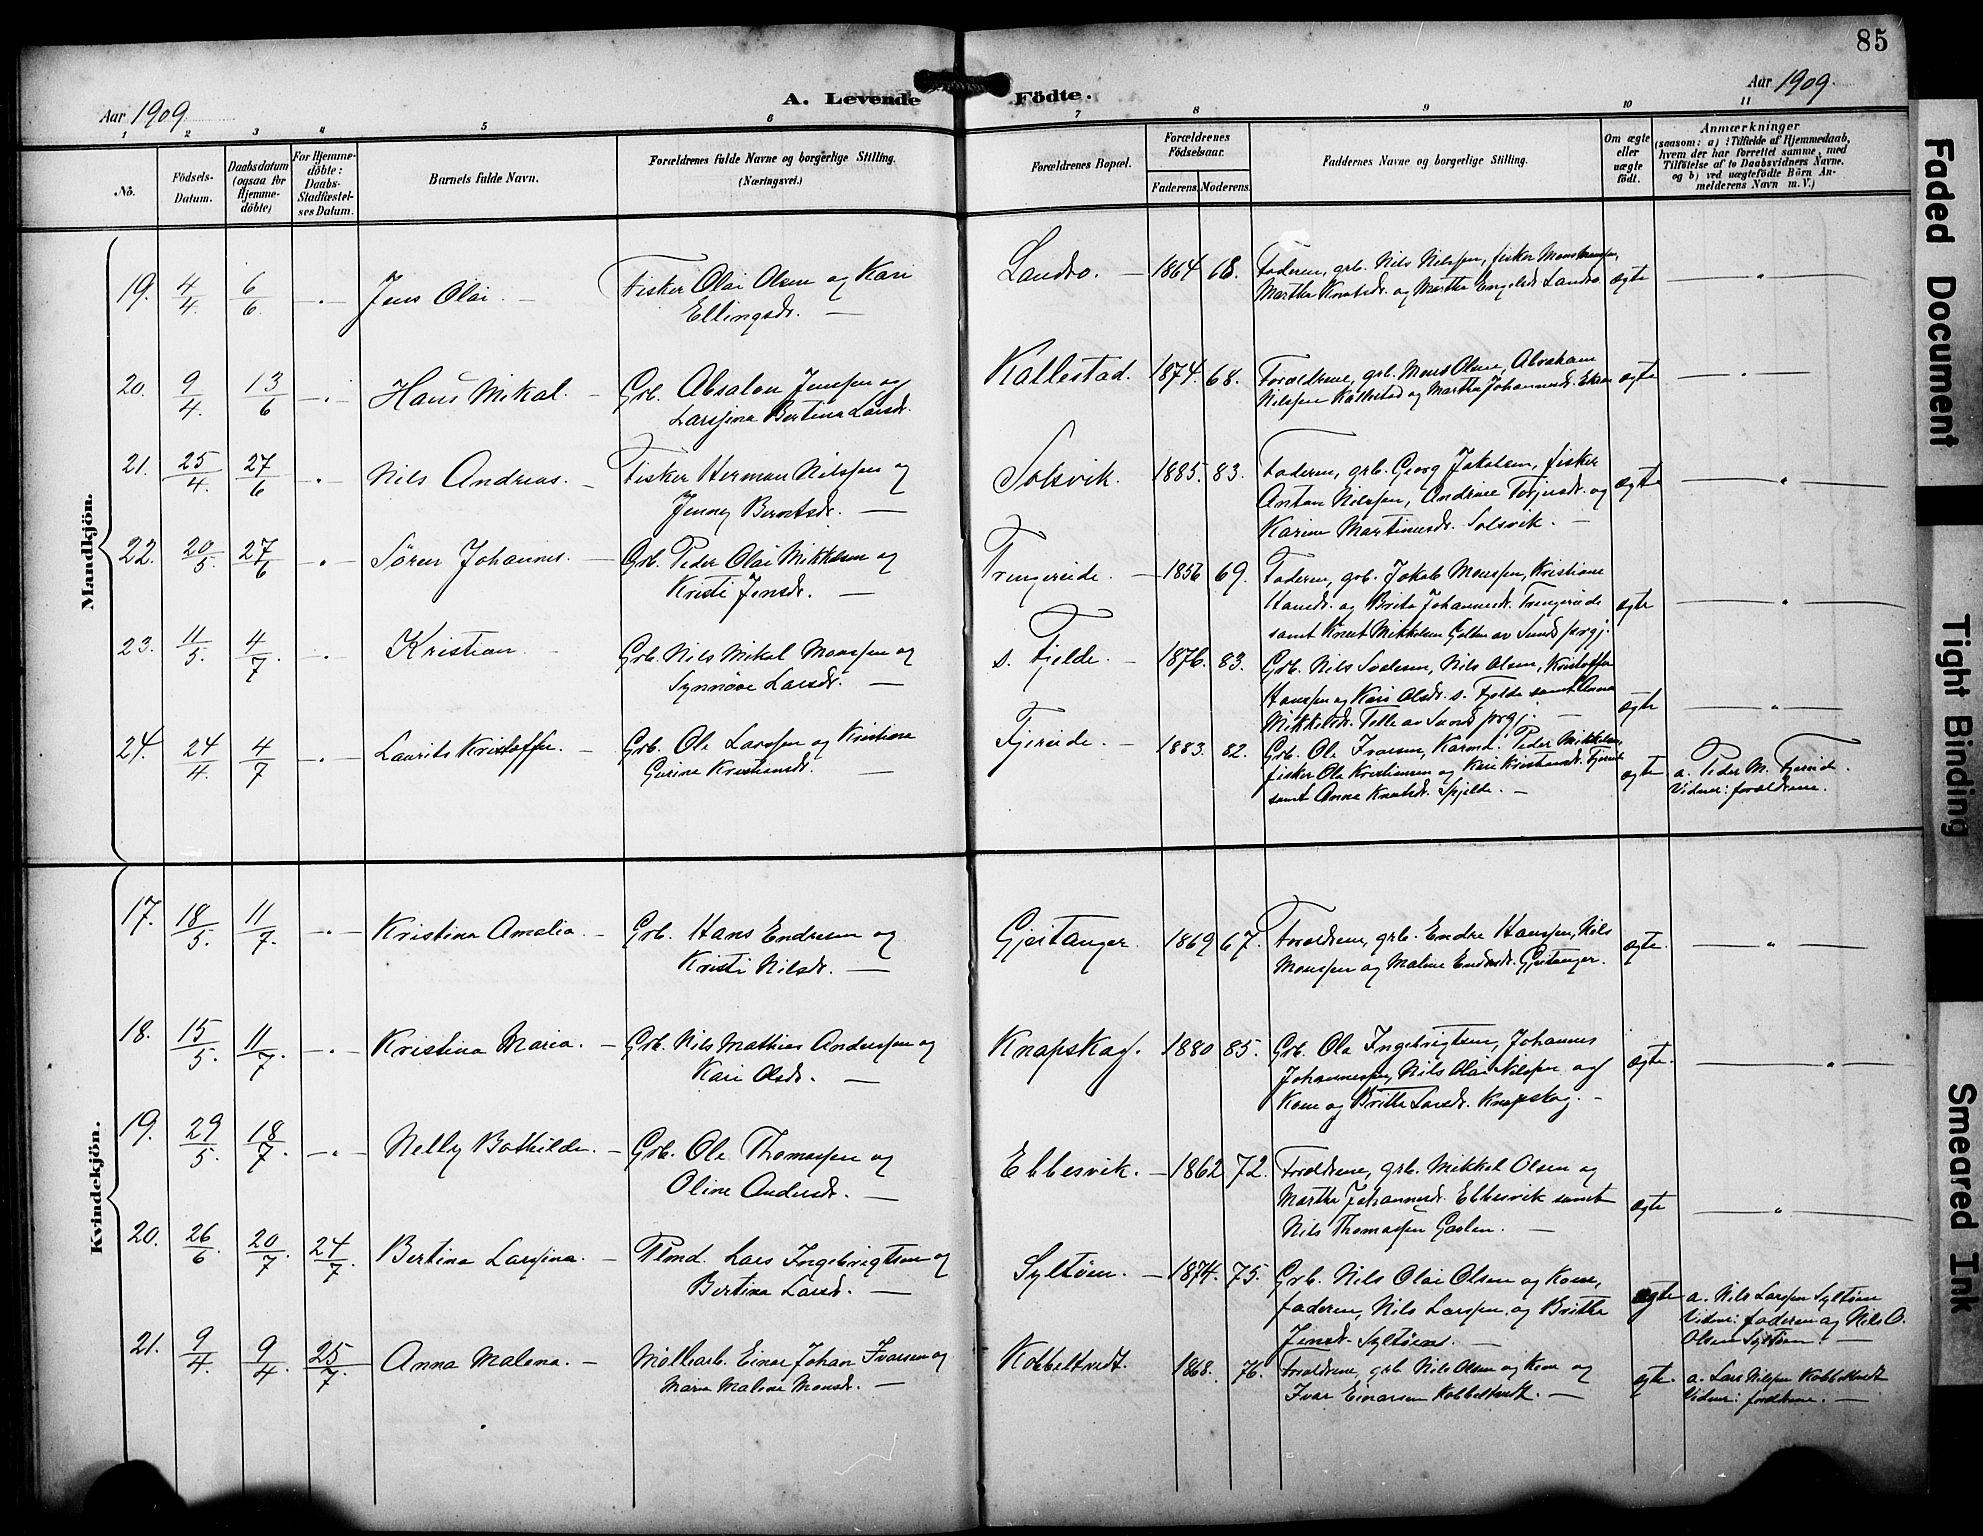 85
Aar 1909
A. Levende Födte.
Aar 1909.
1 2 3 4 5 6 7 8 9 10 11
No.
Födsels-Datum.
Daabsdatum (ogsaa for Hjemme-döbte)
For Hjemme-döbte: Daabs-Stadfæstel-ses Datum.
Barnets fulde Navn.
Forældrenes fulde Navne og borgerlige Stilling.
(Næringsvei.)
Forældrenes Bopæl.
Forældrenes Födselsaar.
Faderens. Moderens.
Faddernes Navne og borgerlige Stilling.
Om ægte eller uægte födt.
Anmærkninger
(saasom: a) i Tilfælde af Hjemmedaab,
hvem der har forrettet samme, med
Tilföielse af to Daabsvidners Navne,
og b) ved uægtefödte Börn An-
melderens Navn m. V.)
Mandkjön.
19. 4/4. 6/6. " Jens Olai. Fisker Olai Olsen og Kari
Ellingsdr.
Landro. 1864 68. Faderen, grb. Nils Nilssen, fisker Mons Monssen,
Marthe Knutsdr. og Marthe Engelsdr. Landro. ægte "
20. 9/4. 13/6 " Hans Mikal. Grb. Absalon Jenssen og
Larssine Bertina Larsdr.
Kallestad. 1874. 68. Forældrene, grb. Mons Olsen, Abraham
Nilssen Kallestad og Marthe Johannesdr. ægte "
21. 25/4. 27/6 " Nils Andreas. Fisker Herman Nilssen og
Jenny Berntsdr.
Solsvik. 1885. 83. Faderen, grb. Georg Jakobsen, fisker
Anton Nilssen, Andrine Torjersdr. og
Karine Martinusdr. Solsvik. ægte "
22. 20/5. 27/6 " Sören Johannes. Grb. Peder Olai Mikkelsen og
Kristi Jensdr.
Trengereide. 1856 69. Faderen, grb. Jakob Monssen, Kristiane
Hansdr. og Brita Johannesdr. Trengereide
samt Knut Mikkelsen Golten av Sund prgj. ægte "
23. 11/5. 4/7. " Kristian Grb. Nils Mikal Monssen og
Synnöve Larsdr.
s. Fjelde. 1876. 83. Grb. Nils Nils Olsen, Kristoffer
Hanssen og Kari Olsdr. s. Fjelde samt Anna
Mikkelsdr. Telle av Sund prgj. ægte "
24. 24/4. 4/7 " Laurits Kristoffer. Grb. Ole Larssen og Kristiane
Gurine Kristiansdr.
Fjereide. 1883. 82. Grb. Ole Ivarsen, Peder Mikkelsen,
fisker Ole Kristiansen og Kari Kristiansdr. Fjereide
samt Anne Knutsdr. Spjelde. ægte a. Peder M. Fjereide.
Vidner: forældrene.
Kvindekjön.
17. 18/5. 11/7. " Kristina Amalia. Grb. Hans Endresen og
Kristi Nilsdr.
Gjeitanger. 1869 67. Forældrene, grb. Endre Hanssen, Nils
Monssen og Malene Endresdr. Gjeitanger. ægte. "
18. 15/5. 11/7. " Kristina Maria. Grb. Nils Mathias Anderssen og
Kari Olsdr.
Knapskog. 1880 85. Grb. Ole Ingebrigtsen, Johannes
Johannessen, Nils Olai Nilssen og
Kone og Britha Larsdr. Knapskog. ægte. "
19. 29/5. 18/7. " Nelly Bothilde. Grb. Ole Thomassen og
Oline Andersdr.
Ebbesvik. 1862 72. Forældrene, grb. Mikkel Olsen og
Marthe Johannesdr. Ebbesvik samt
Nils Thomassen. ægte "
20. 26/6 20/7. 24/7. Bertina Larssina. Plmd. Lars Ingebrigtsen og
Bertina Larsd.
Syltöen. 1874. 75. Grb. Nils Olai Olsen og Kone,
faderen, Nils Larssen, og Britha
Jensdr. Syltöen. ægte a. Nils Larssen Syltöen
Vidner: faderen og Nils O.
Olsen Syltöen.
21. 9/4 9/4 25/7 Anna Malena. Mollearb. Einar Johan Ivarsen og
Marie Malene Monsdr.
Kobbeltvedt. 1868. 76. Forældrene, grb. Nils Olsen og Kone og
Ivar Einarsen Kobbeltvedt. ægte. a. Lars Nilssen Kobbeltvedt
Vidner: forældrene.
Faded Document
Tight Binding
Smeared Ink